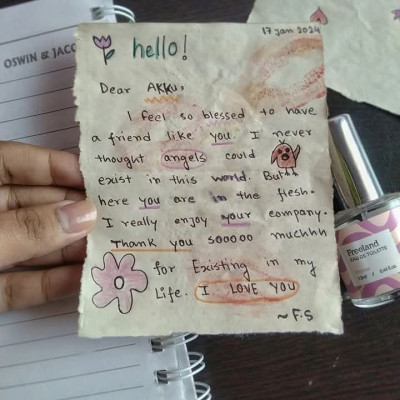 OSWIN & JACO
17 Jan 2024
hello!
Dear AKKU,
I feel so blessed to have
a friend like you. I never
thought angels could
exist in this world. Buttt
here you are in the flesh.
I really enjoy your company.
Thank you sooooo muchhh
for Existing in my
Life. I LOVE YOU
~ F.S
Freeland
EAU DE TOILETTE